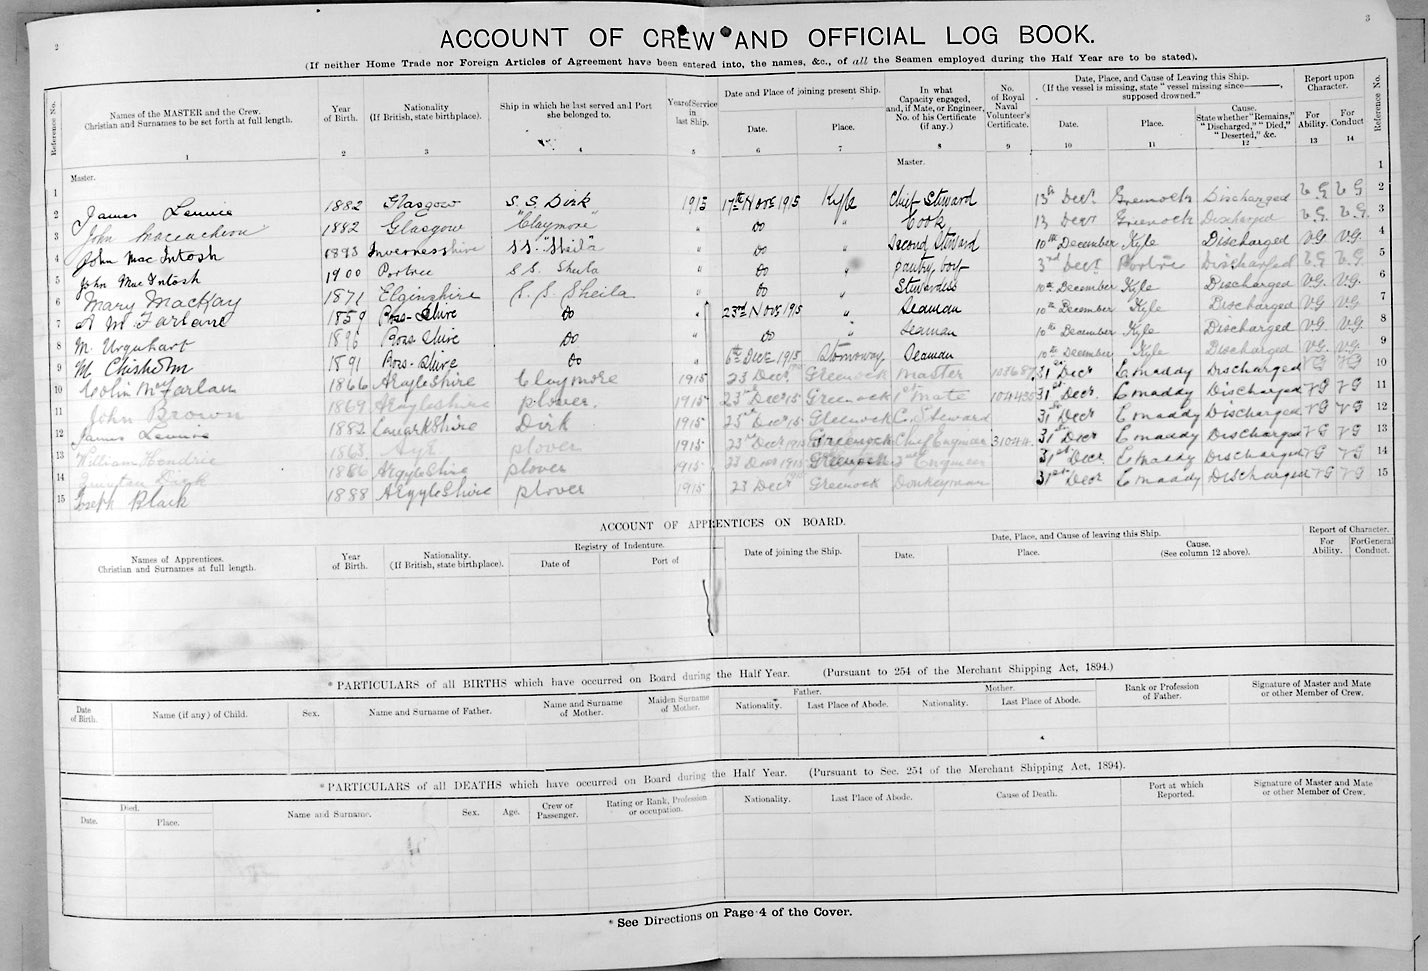 2
3
ACCOUNT OF CREW AND OFFICIAL LOG BOOK.
(If neither Home Trade nor Foreign Articles of Agreement have been entered into, the names, &c., of all the Seamen employed during the Half Year are to be stated).
Reference No. Names of the MASTER and the Crew. Christian and Surnames to be set forth at full length. Year of Birth. Nationality (If British, state birthplace). Ship in which he last served and Port she belonged to. Year of Service in last Ship. Date and Place of joining present Ship. Date. Place. In what Capacity engaged, and, if Mate, or Engineer, No. of his Certificate (if any.) No. of Royal Naval Volunteer's Certificate. Date, Place, and Cause of Leaving this Ship. (If the vessel is missing, state "vessel missing since———, supposed drowned." Date. Place. Cause. State whether "Remains," "Discharged," "Died," "Deserted," &c. Report upon Character. For Ability. For Conduct Reference No.
1 2 3 4 5 6 7 8 9 10 11 12 13 14
Master. Master. 1
1 James Lennie 1882 Glasgow S.S. Dirk 1915 17th Nov 1915 Kyle Chief Steward 13th Decr Greenock Discharged V.G V.G 2
2 John Maceachern 1882 Glasgow "Claymore" " do " Cook 13 Decr Greenock Discharged V.G. V.G. 3
3 John MacIntosh 1893 Invernesshire SS. "Sheila" " do " Second Steward 10th December Kyle Discharged VG VG. 4
4 John MacIntosh 1900 Portree S.S. Sheila " do " pantry boy 3rd Decr Portree Discharged V.G V.G. 5
5 Mary MacKay 1871 Elginshire S.S. Sheila " do " Stewardess 10th December Kyle Discharged VG. VG. 6
6 McFarlane 1859 Ross-Shire do " 23rd Nov 1915 " Seaman 10th December Kyle Discharged VG VG 7
7 M. Urquhart 1896 Ross Shire do " do " Seaman 10th December Kyle Discharged VG VG. 8
8 M Chisholm 1891 Ross-Shire do " 6th DEC 1915 Stornoway Seaman 10th December Kyle Discharged VG. VG. 9
9 Colin McFarlan 1866 Argyleshire Claymore 1915 23 Decr 1915 Greenock Master 31st Decr Emaddy Discharged VG VG 10
10 John Brown 1869 Argyleshire plover. 1915 23rd Decr 15 Greenock 1st Mate 31st Decr Emaddy Discharged VG VG 11
11 James Lennie 1882 LanarkShire Dirk 1915 23rd Decr 15 Greenock C. Steward 31st Decr Emaddy Discharged VG VG 12
12 William Hendrie 1863 Ayr plover 1915 23rd Decr 1915 Greenock Chief Engineer 31044 31st Decr Emaddy Discharged VG VG 13
13 1886 ArgyleShire plover 1915 23 Decr 1915 Greenock 2nd Engineer 31st Decr Emaddy Discharged VG VG 14
14 Joseph Black 1888 ArgyleShire plover 1915 23 Decr Greenock Donkeyman 31st Decr Emaddy Discharged VG VG 15
15
ACCOUNT OF APPRENTICES ON BOARD.
Names of Apprentices. Christian and Surnames at full length. Year of Birth. Nationality. (If British, state birthplace). Registry of Indenture. Date of Port of Date of joining the Ship. Date, Place, and Cause of leaving this Ship. Date. Place. Cause. (See column 12 above). Report of Character. For Ability. For General Conduct.
* PARTICULARS of all BIRTHS which have occurred on Board during the Half Year. (Pursuant to 254 of the Merchant Shipping Act, 1894.)
Date of Birth. Name (if any) of Child. Sex. Name and Surname of Father. Name and Surname of Mother. Maiden Surname of Mother. Father. Nationality. Last Place of Abode. Mother. Nationality. Last Place of Abode. Rank or Profession of Father. Signature of Master and Mate or other Member of Crew.
* PARTICULARS of all DEATHS which have occurred on Board during the Half Year. (Pursuant to Sec. 254 of the Merchant Shipping Act, 1894).
Died. Date. Place. Name and Surname. Sex. Age. Crew or Passenger. Rating or Rank, Profession or occupation. Nationality. Last Place of Abode. Cause of Death. Port at which Reported. Signature of Master and Mate or other Member of Crew.
* See Directions on Page 4 of the Cover.